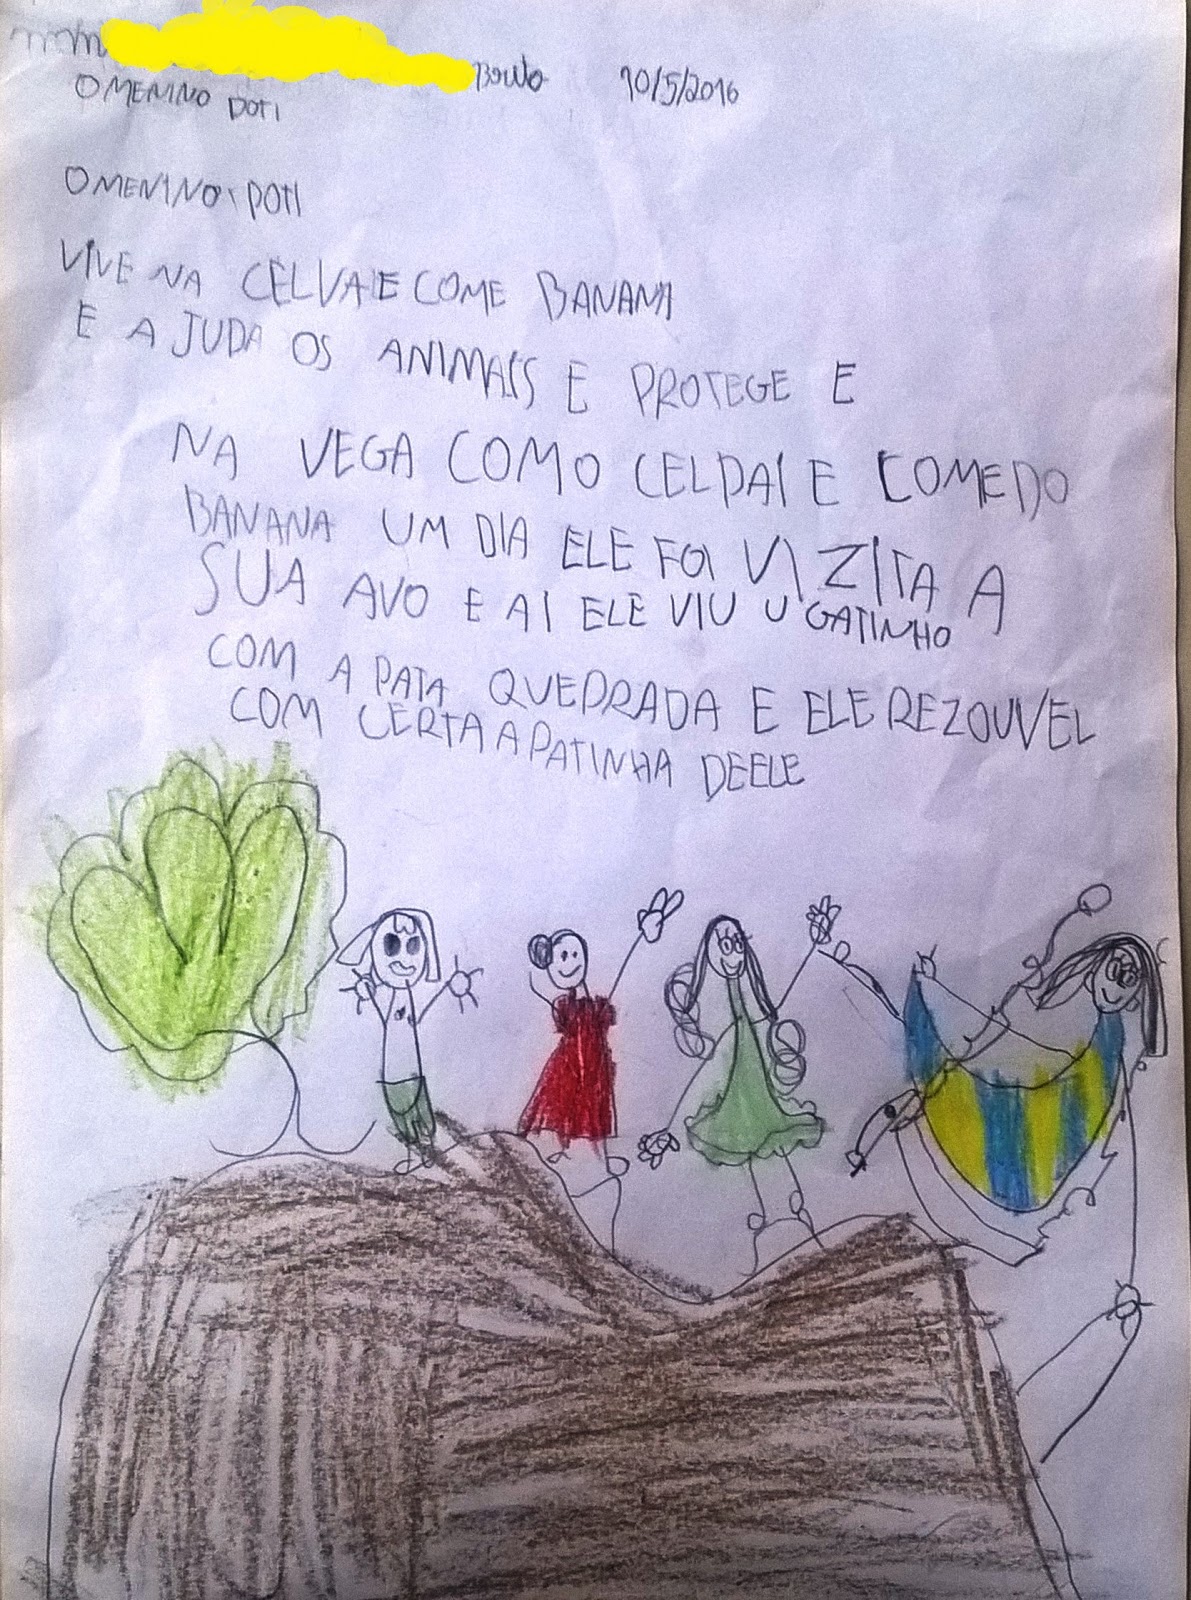 10/5/2016
O MENINO POTI
O MENINO POTI
VIVE NA CELVA E COME BANANA
E AJUDA OS ANIMAIS E PROTEGE E
NA VEGA COMO CELPAI E COMEDO
BANANA UM DIA ELE FOI VIZITA A
SUA AVO E AI ELE VIU U GATINHO
COM A PATA QUEDRADA E ELE REZOUVEL
COM CERTA A PATINHA DEELE